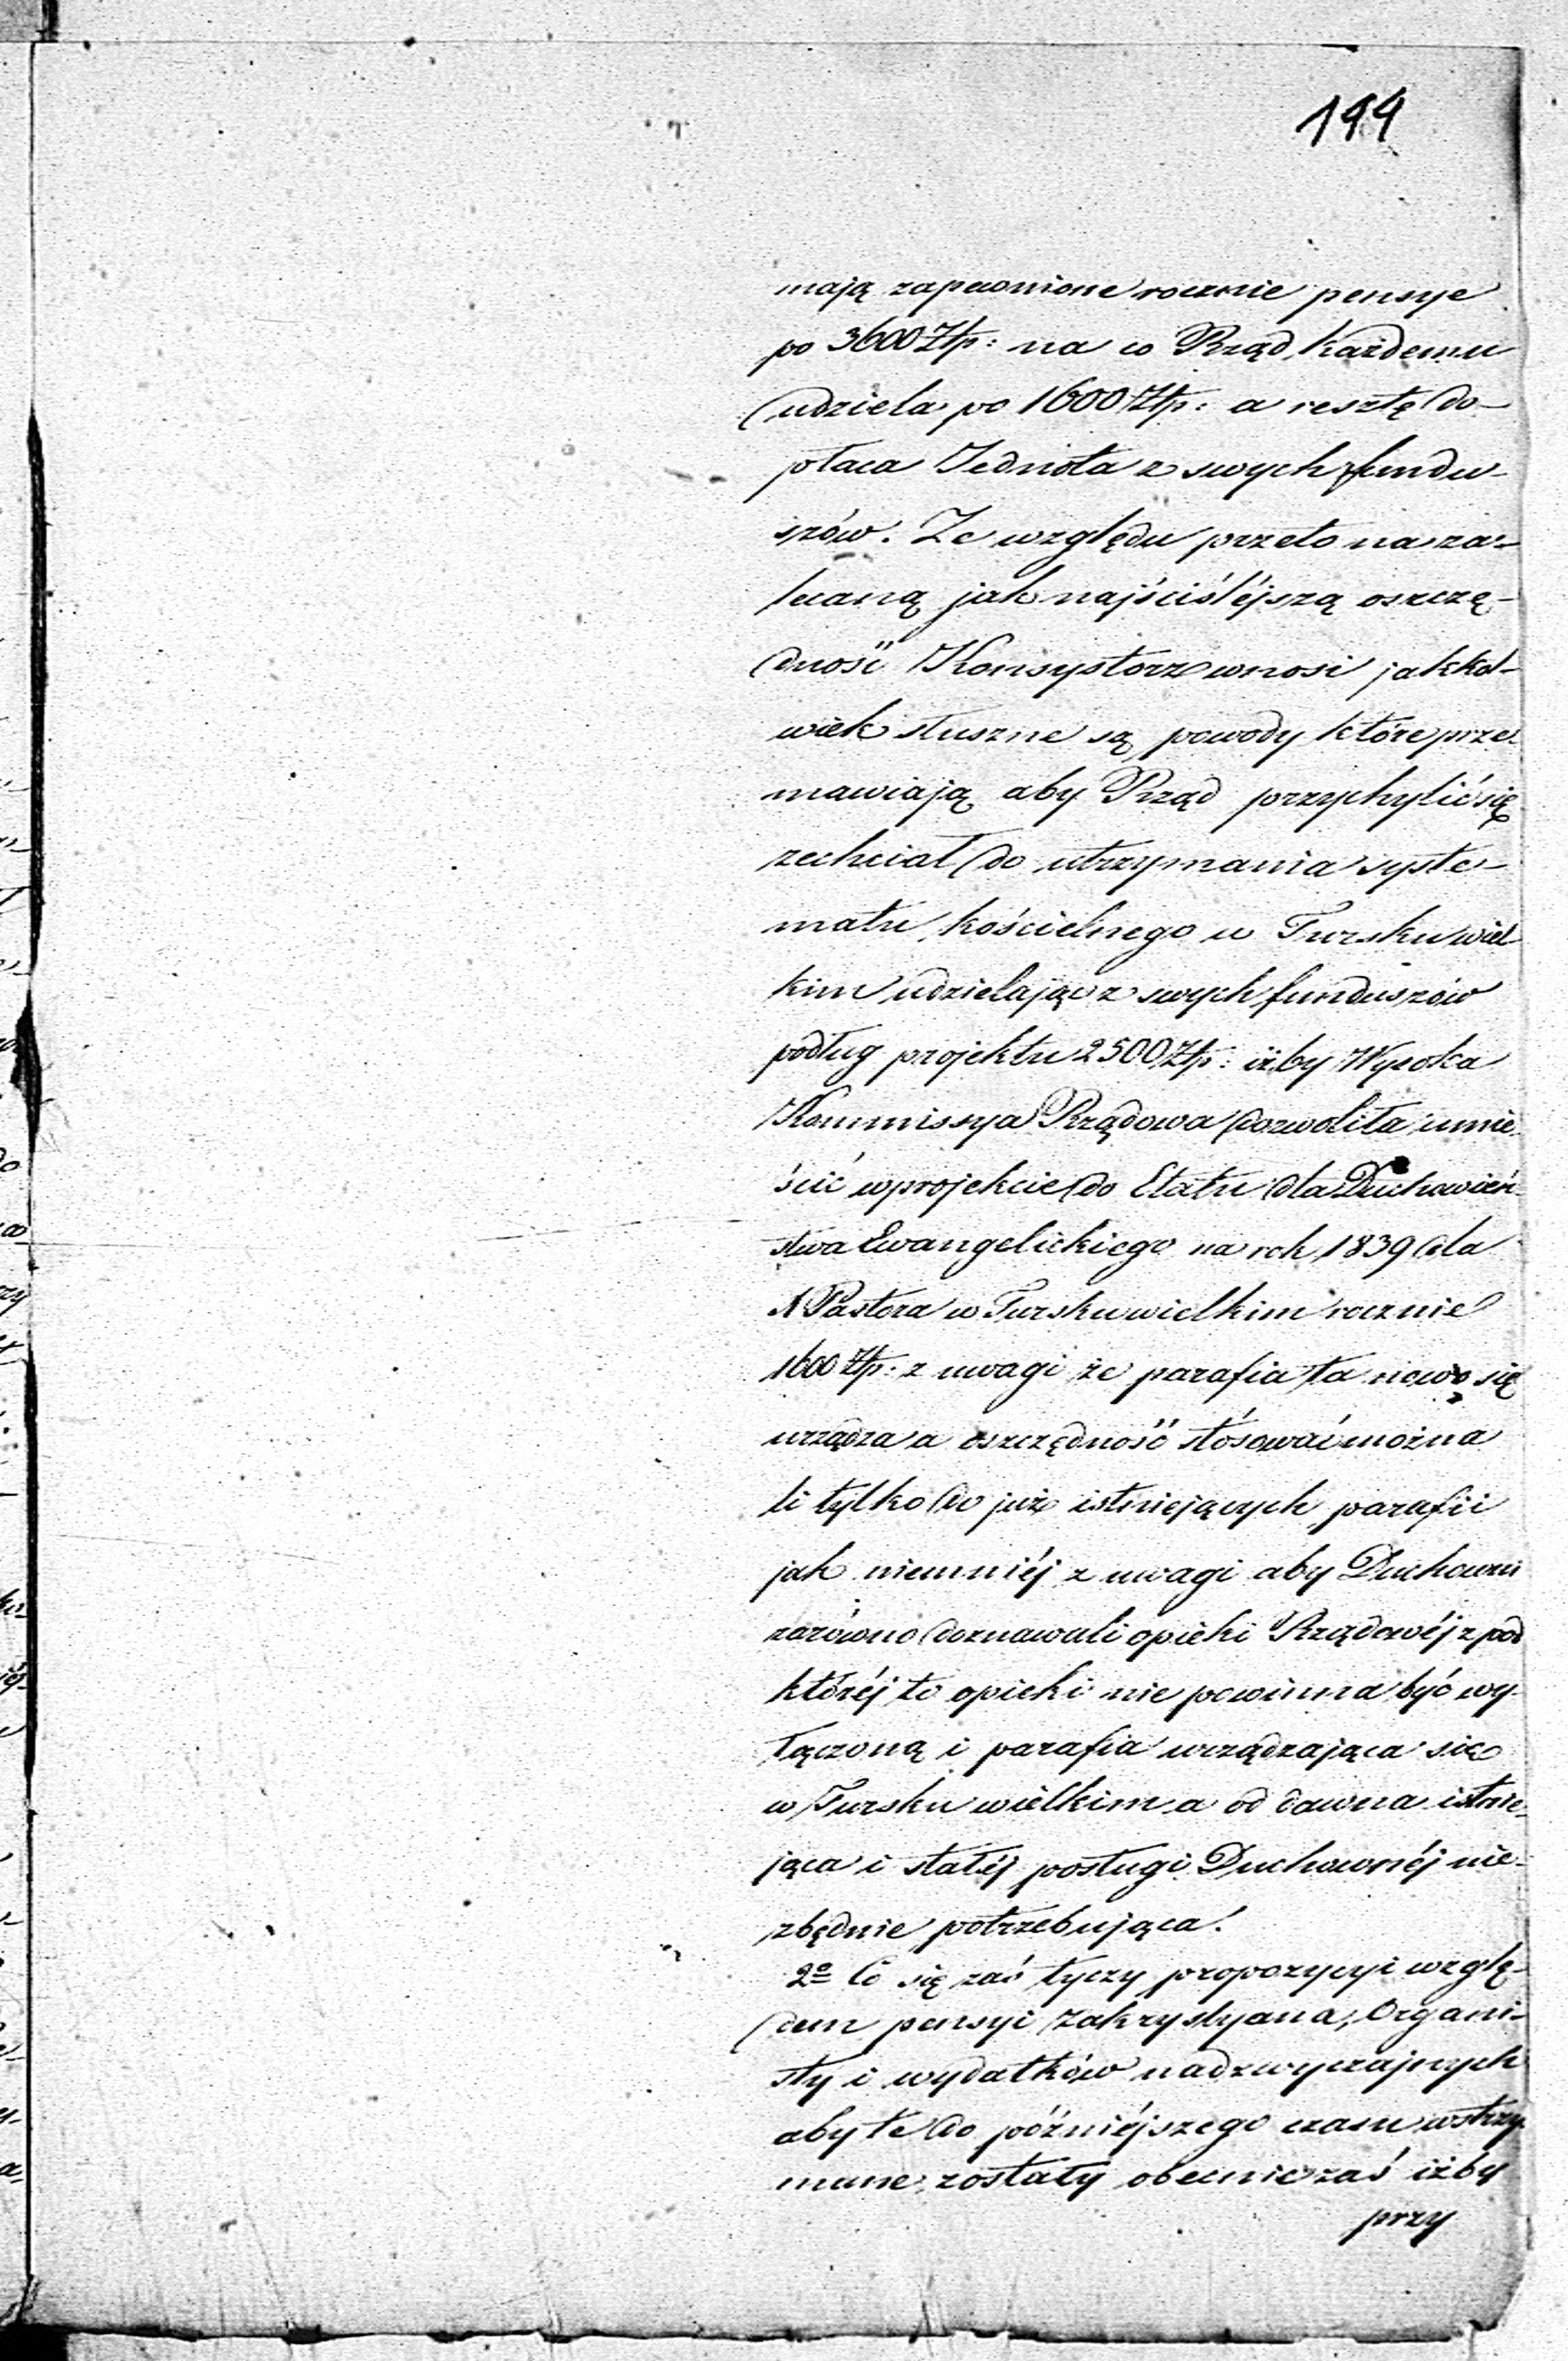 199
mają zapewnione rocznie pensye
po 3600 Złp: na co Rząd każdemu
udziela po 1600 Złp: a resztę do-
płaca Jednota z swych fundu-
szów. Ze względu przeto na za-
lecaną jak najściśléjszą oszczę-
dność Konsystorz wnosi jakkol-
wiek słuszne są powody które prze-
mawiają aby Rząd przychylić się
zechciał do utrzymania syste-
matu kościelnego w Tursku wiel-
kim udzielając z swych funduszów
podług projektu 2500 Złp: iżby Wysoka
Kommissya Rządowa dozwoliła umie-
ścić w projekcie do Etatu dla Duchowień-
stwa Ewangelickiego na rok 1839 dla
N Pastora w Tursku wielkim rocznie
1600 Złp: z uwagi że parafia ta nowo się
urządza a oszczędność stósować można
li tylko do już istniejących parafii
jak niemniéj z uwagi aby Duchowni
zarówno doznawali opieki Rządowéj z pod
któréj to opieki nie powinna być wy-
łączoną i parafia urządzająca się
w Tursku wielkim a od dawna istnie-
jąca i stałéj posługi Duchownéj nie-
zbędnie potrzebująca.
2º Co się zaś tyczy propozycyi wzglę-
dem pensyi Zakrystyana, Organi-
sty i wydatków nadzwyczajnych
aby te do późniéjszego czasu wstrzy-
mane zostały obecnie zaś iżby
przy